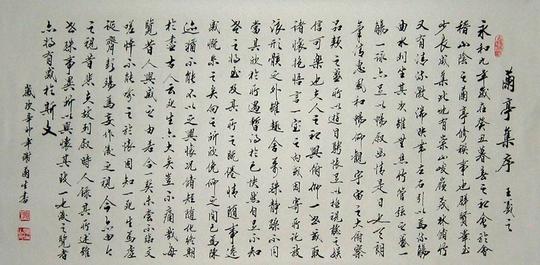 蘭亭集序 王羲之
永和九年歲在癸丑暮春之初會於會
稽山陰之蘭亭修禊事也群賢畢至
少長咸集此地有崇山峻嶺茂林脩竹
又有清流激湍映帶左右引以為流觴
曲水列坐其次雖無絲竹管弦之盛一
觴一詠亦足以暢敘幽情是日也天朗
氣清惠風和暢仰觀宇宙之大俯察
品類之盛所以遊目騁懷足以極視聽之娛
信可樂也夫人之相與俯仰一世或取
諸懷抱悟言一室之內或因寄所託放
浪形骸之外雖趣舍萬殊靜躁不同
當其欣於所遇暫得於己快然自足不知
老之將至及其所之既倦情隨事遷
感慨係之矣向之所欣俛仰之間已為陳
跡猶不能不以之興懷況脩短隨化終期
於盡古人云死生亦大矣豈不痛哉每
覽昔人興感之由若合一契未嘗不臨文
嗟悼不能喻之於懷固知一死生為虛
誕齊彭殤為妄作後之視今亦由今
之視昔悲夫故列敘時人錄其所述雖
世殊事異所以興懷其致一也後之覽者
亦將有感於斯文
歲次辛卯年